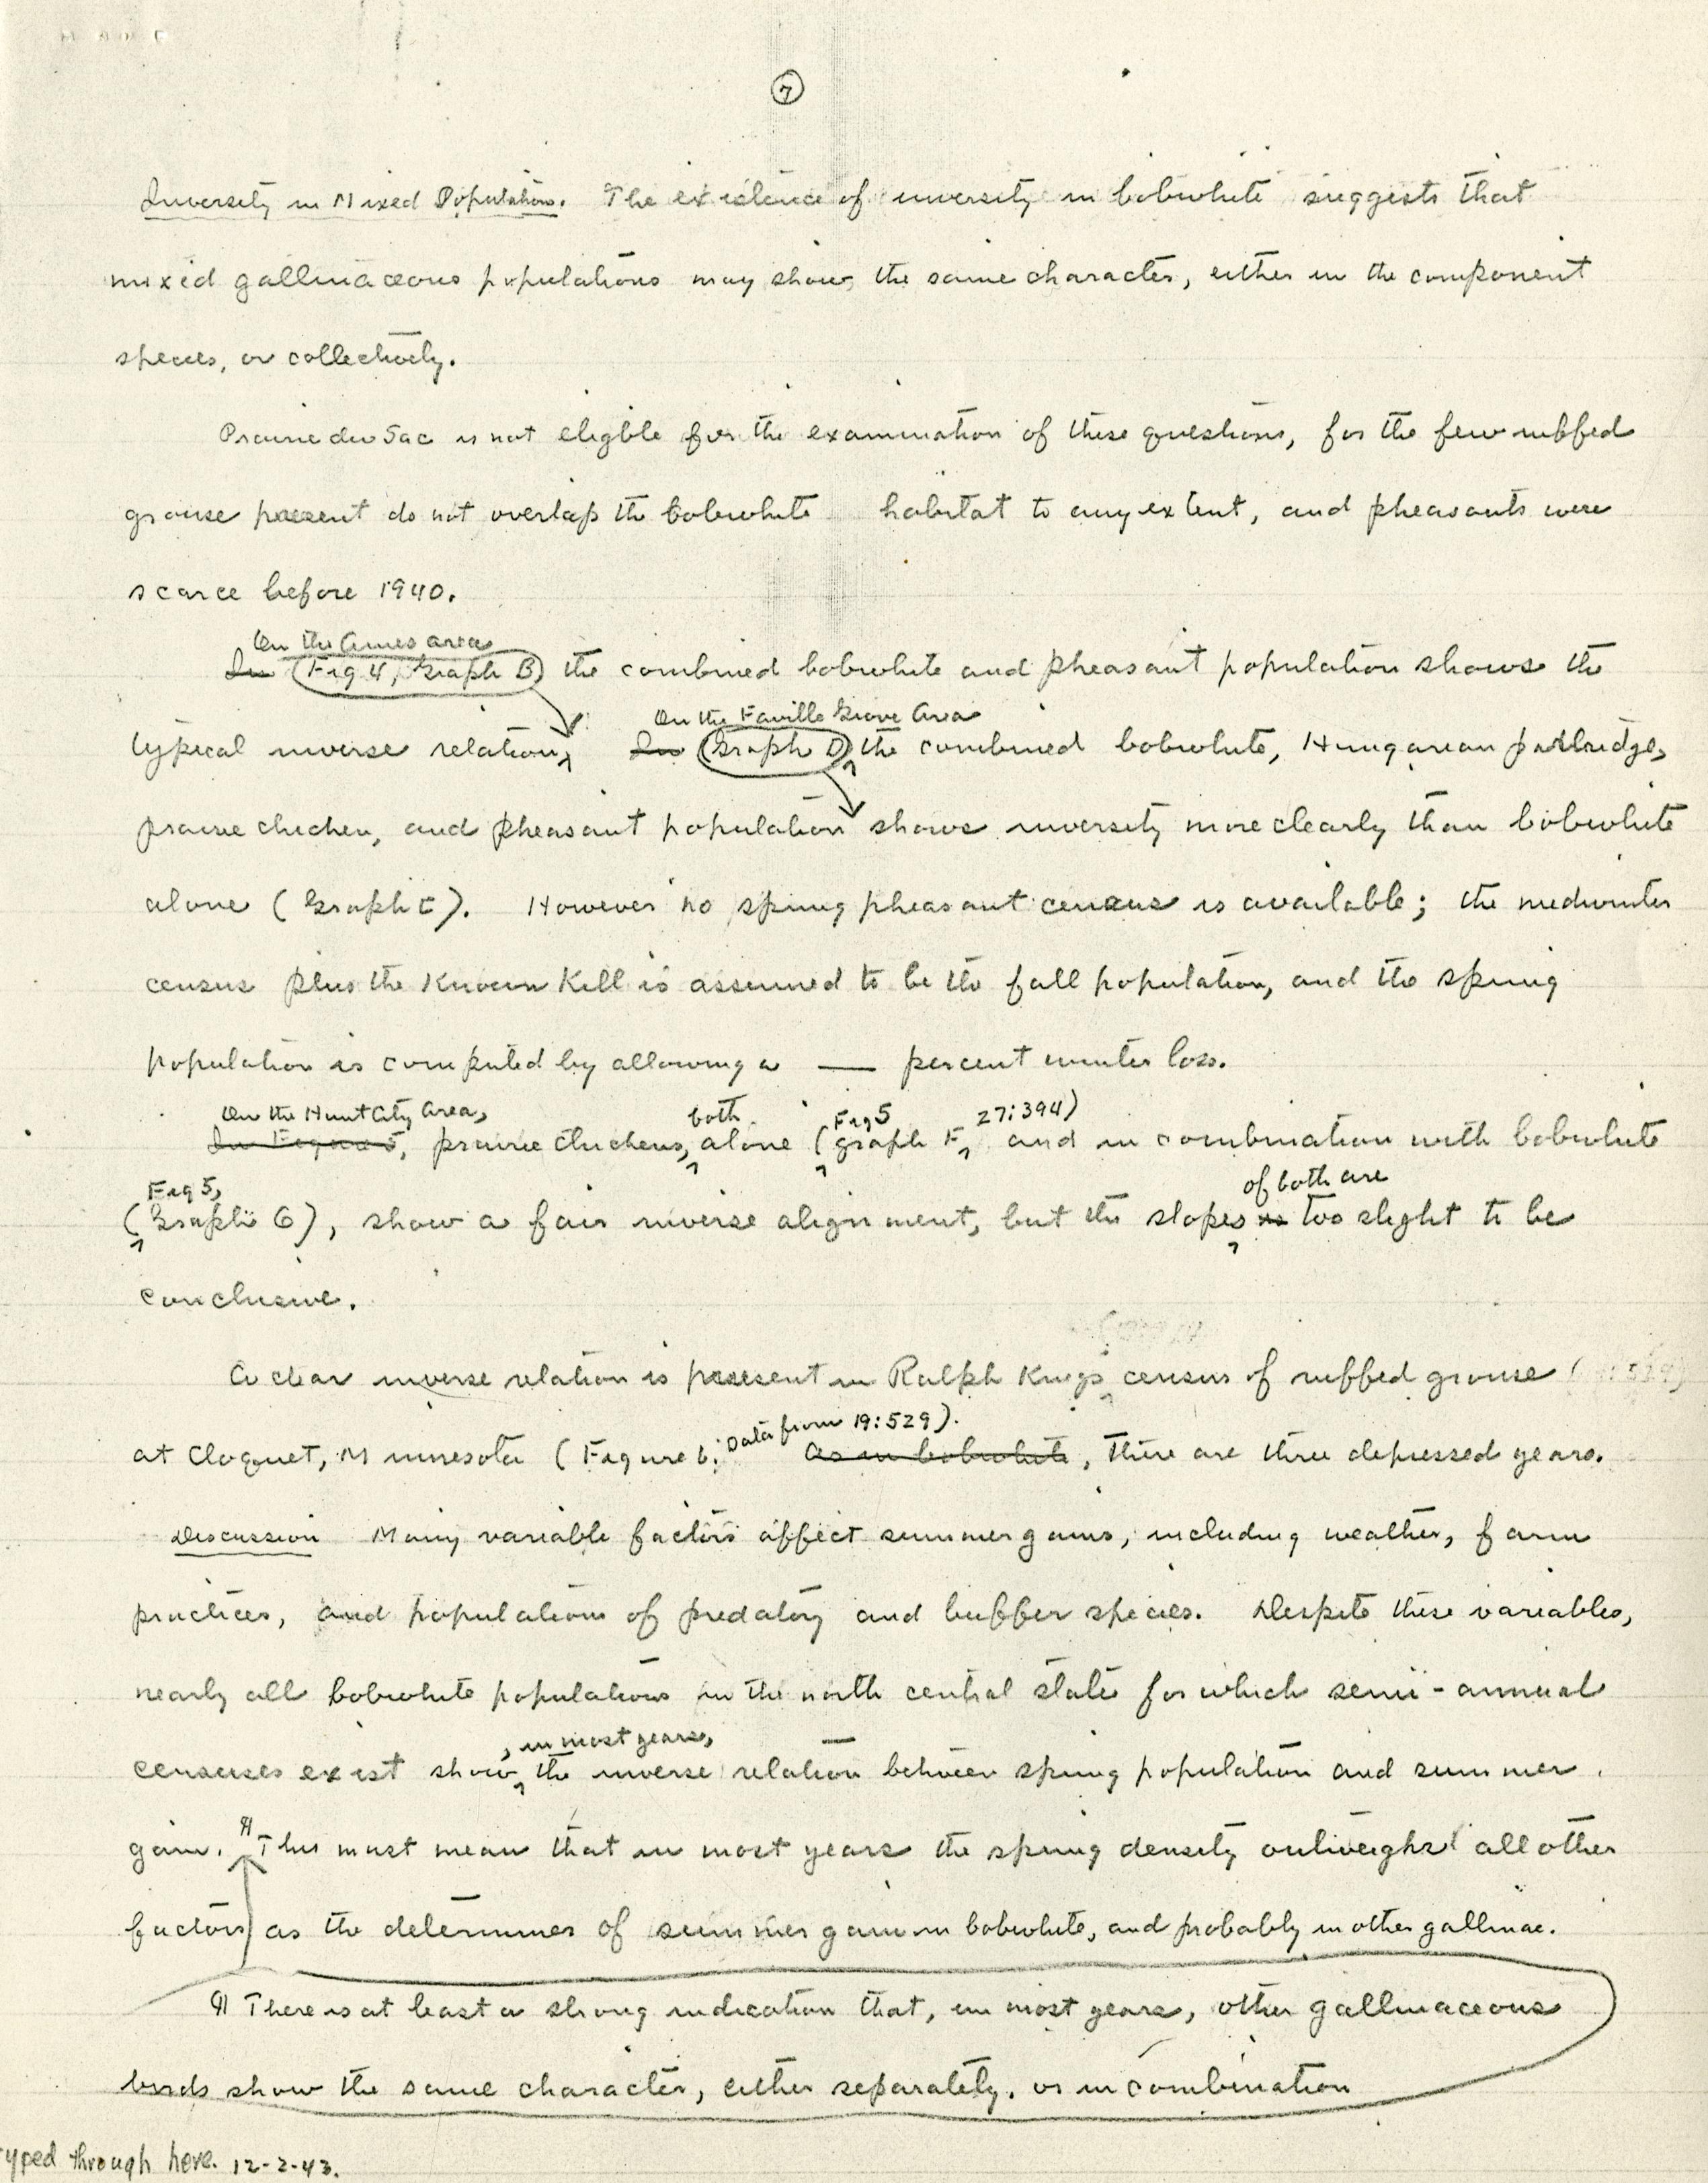 7
Inversity in Mixed Populations. The existence of inversity in bobwhite suggests that
mixed gallinaceous populations may show the same character, either in the component
species, or collectively.
Prairie du Sac is not eligible for the examination of these questions, for the few ruffed
grouse present do not overlap the bobwhite habitat to any extent, and pheasants were
scarce before 1940.
On the Ames area
In (Fig 4, Graph B) the combined bobwhite and pheasant population shows the
On the Faville Grove Area
typical inverse relation, In (Graph D) the combined bobwhite, Hungarian partridge,
prairie chicken, and pheasant population shows inversity more clearly than bobwhite
alone (Graph C). However no spring pheasant census is available; the midwinter
census plus the known kill is assumed to be the fall population, and the spring
population is computed by allowing a — percent winter loss.
On the Hunt City Area, both Fig 5 27:394)
In Figure 5, prairie chickens, alone (graph F, and in combination with bobwhite
Fig 5, of both are
(Graph G), show a fair inverse alignment, but the slopes is too slight to be
conclusive.
A clear inverse relation is present in Ralph Kings census of ruffed grouse
Data from 19:529).
at Cloquet, Minnesota (Figure 6; As in bobwhite, there are three depressed years.
Discussion Many variable factors affect summer gains, including weather, farm
practices, and populations of predatory and buffer species. Despite these variables,
nearly all bobwhite populations in the north central states for which semi-annual
, in most years,
censuses exist show the inverse relation between spring population and summer
gain. ¶ This must mean that in most years the spring density outweighs all other
factors as the determiner of summer gain in bobwhite, and probably in other gallinae.
¶ There is at least a strong indication that, in most years, other gallinaceous
birds show the same character, either separately, or in combination
yped through here. 12-2-43.